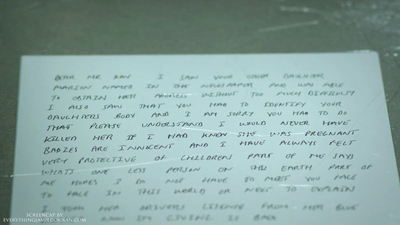 DEAR MR KAY I SAW YOUR OTHER DAUGHTER
MARION NAMED IN THE NEWSPAPER AND WAS ABLE
TO OBTAIN HER ADDRESS WITHOUT TOO MUCH DIFFICULTY
I ALSO SAW THAT YOU HAD TO IDENTIFY YOUR
DAUGHTERS BODY AND I AM SORRY YOU HAD TO DO
THAT PLEASE UNDERSTAND I WOULD NEVER HAVE
KILLED HER IF I HAD KNEW SHE WAS PREGNANT
BABIES ARE INNOCENT AND I HAVE ALWAYS FELT
VERY PROTECTIVE OF CHILDREN PART OF ME SAYS
WHATS ONE LESS PERSON ON THIS EARTH PART OF
ME HOPES I DO NOT HAVE TO MEET YOU FACE
TO FACE IN THIS WORLD OR NEXT TO EXPLAIN
I TOOK HER DRIVERS LICENSE FROM HER BLUE
SCREENCAP BY
EVERYTHINGSHERLOCK.WS.COM